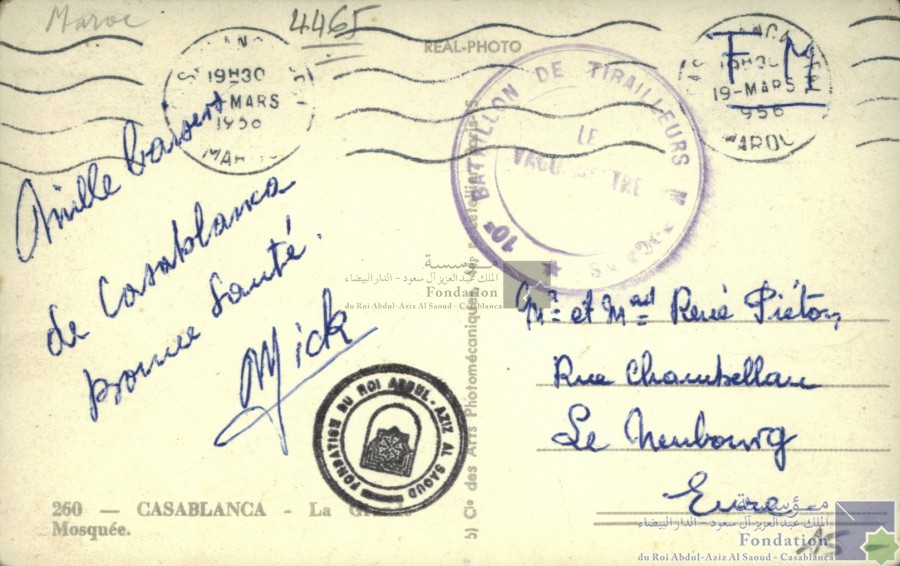 Maroc
4465
REAL-PHOTO
19H30
MARS
1956
19-MARS
956
MAROC
F M
10e BATAILLON DE TIRAILLEURS
LE
Mille baisers
de Casablanca
bonne santé.
Mick
Mr et Mad René Piéton
Rue Chambellan
Le Neubourg
Eure
مؤسسة
الملك عبدالعزيز آل سعود - الدار البيضاء
Fondation
du Roi Abdul-Aziz Al Saoud - Casablanca
FONDATION DU ROI ABDUL-AZIZ AL SAOUD
Cie des Arts Photomécaniques
260 — CASABLANCA - La
Mosquée.
مؤسسة
الملك عبدالعزيز آل سعود - الدار البيضاء
Fondation
du Roi Abdul-Aziz Al Saoud - Casablanca